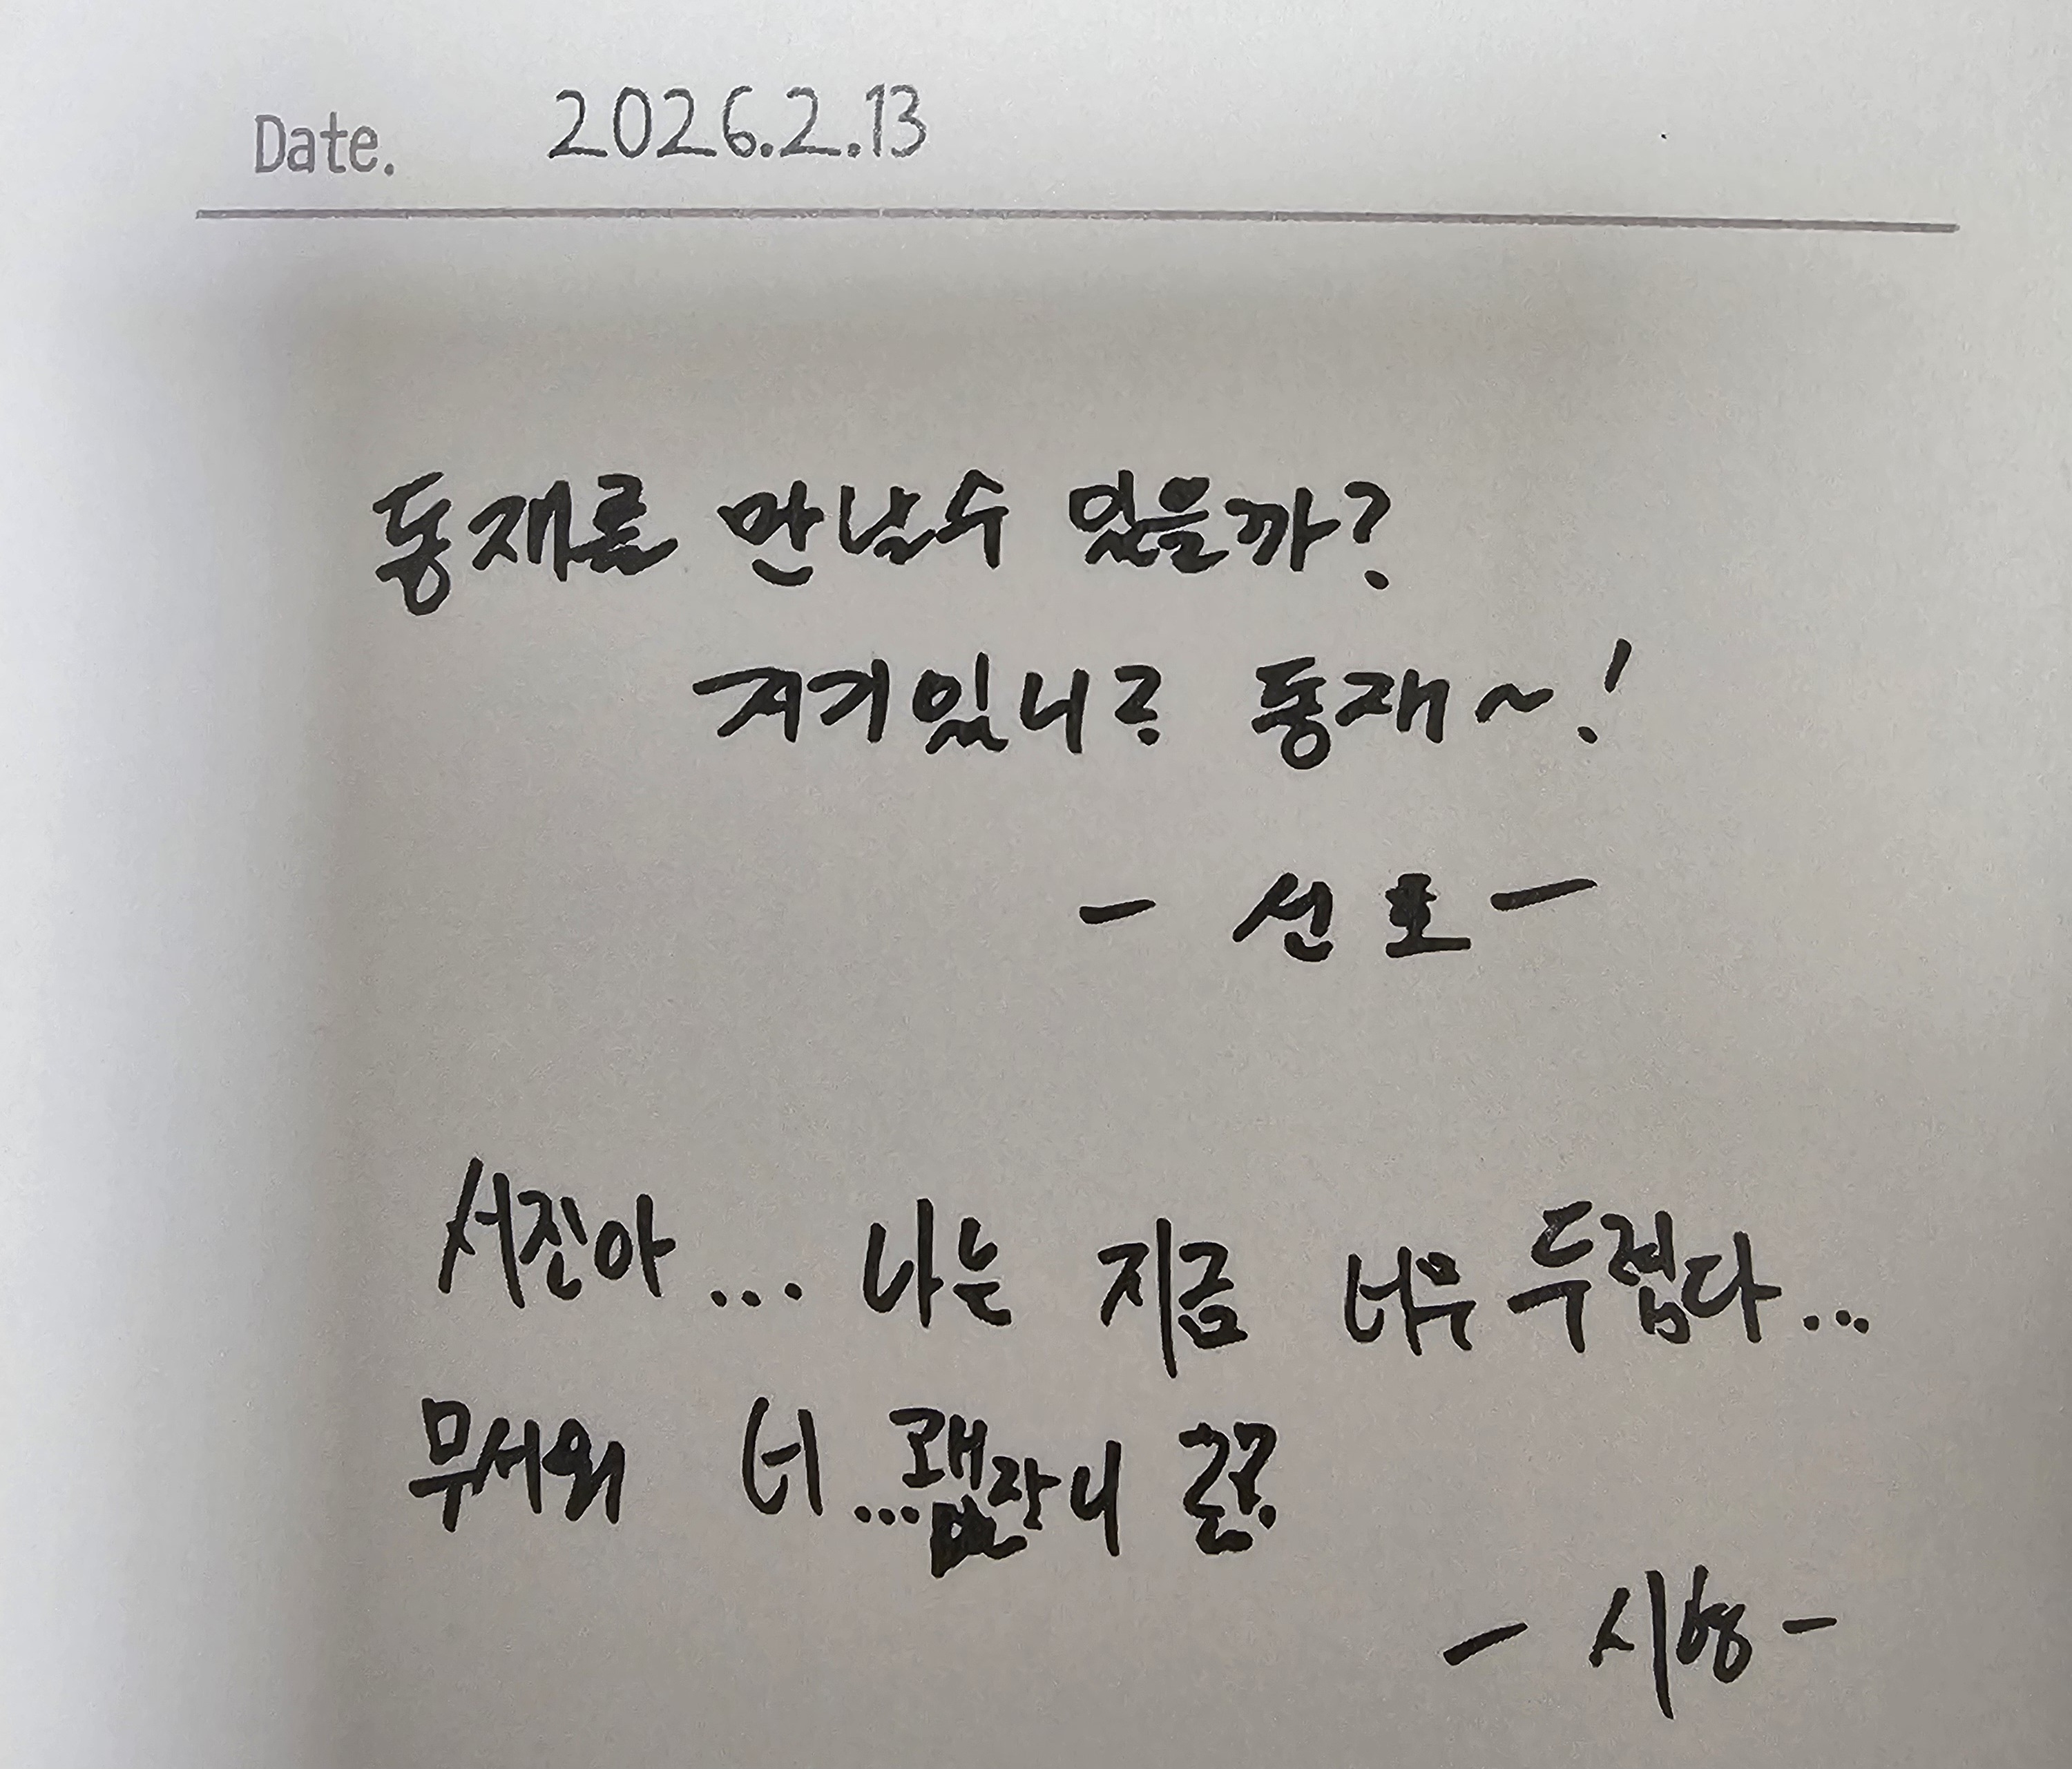 Date. 2026.2.13
동재를 만날수 있을까?
저기있니? 동재~!
- 선호 -
서진아... 나는 지금 너무 두렵다...
무서워 너... 괜찮니 곧?
- 시형 -